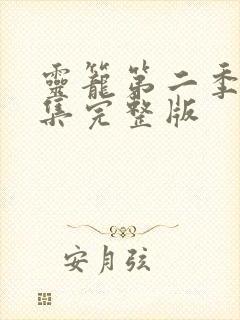 靈籠第二季
集完整版
安月弦